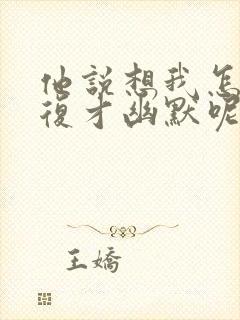 他説想我怎
復才幽默呢
王嬌